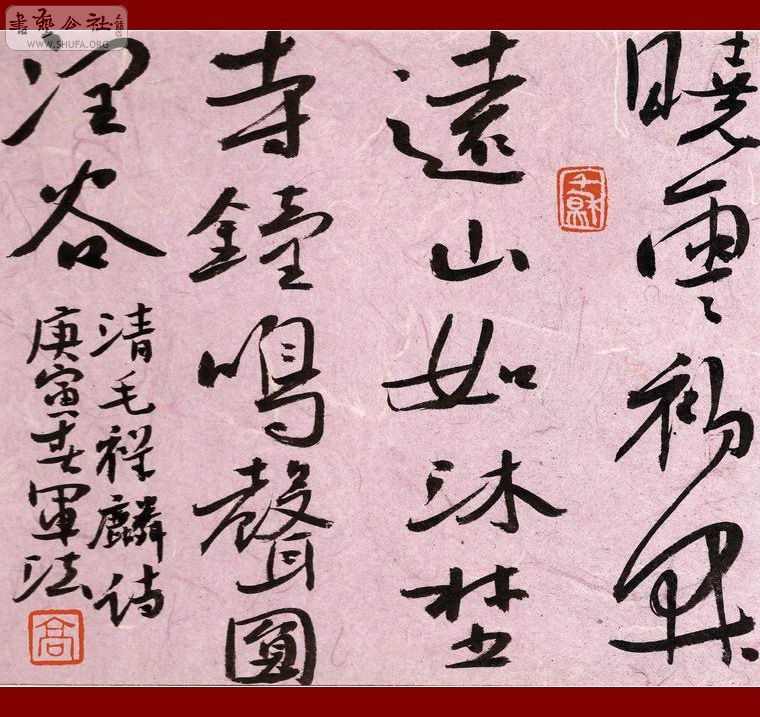 書藝公社
WWW.SHUFA.ORG
曉雲初昇
遠山如沐埜
寺鐘鳴聲圓
澗谷
清毛祥麟詩
庚寅春軍法
高